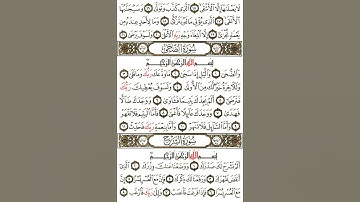 لَا يَصْلَىٰهَآ إِلَّا ٱلْأَشْقَى ٱلَّذِى كَذَّبَ وَتَوَلَّىٰ وَسَيُجَنَّبُهَا
ٱلْأَتْقَى ٱلَّذِى يُؤْتِى مَالَهُۥ يَتَزَكَّىٰ وَمَا لِأَحَدٍ عِندَهُۥ مِن
نِّعْمَةٍ تُجْزَىٰٓ إِلَّا ٱبْتِغَآءَ وَجْهِ رَبِّهِ ٱلْأَعْلَىٰ وَلَسَوْفَ يَرْضَىٰ
سُورَةُ الضُّحَىٰ
بِسْمِ ٱللَّهِ ٱلرَّحْمَٰنِ ٱلرَّحِيمِ
وَٱلضُّحَىٰ وَٱلَّيْلِ إِذَا سَجَىٰ مَا وَدَّعَكَ رَبُّكَ وَمَا قَلَىٰ
وَلَلْءَاخِرَةُ خَيْرٌ لَّكَ مِنَ ٱلْأُولَىٰ وَلَسَوْفَ يُعْطِيكَ رَبُّكَ
فَتَرْضَىٰٓ أَلَمْ يَجِدْكَ يَتِيمًا فَـَٔاوَىٰ وَوَجَدَكَ ضَآلًّا
فَهَدَىٰ وَوَجَدَكَ عَآئِلًا فَأَغْنَىٰ فَأَمَّا ٱلْيَتِيمَ فَلَا تَقْهَرْ
وَأَمَّا ٱلسَّآئِلَ فَلَا تَنْهَرْ وَأَمَّا بِنِعْمَةِ رَبِّكَ فَحَدِّثْ
سُورَةُ الشَّرْحِ
بِسْمِ ٱللَّهِ ٱلرَّحْمَٰنِ ٱلرَّحِيمِ
أَلَمْ نَشْرَحْ لَكَ صَدْرَكَ وَوَضَعْنَا عَنكَ وِزْرَكَ ٱلَّذِىٓ
أَنقَضَ ظَهْرَكَ وَرَفَعْنَا لَكَ ذِكْرَكَ فَإِنَّ مَعَ ٱلْعُسْرِ يُسْرًا
إِنَّ مَعَ ٱلْعُسْرِ يُسْرًا فَإِذَا فَرَغْتَ فَٱنصَبْ وَإِلَىٰ رَبِّكَ فَٱرْغَب